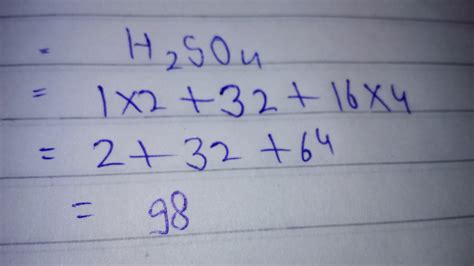 H₂SO₄
= 1×2 + 32 + 16×4
= 2 + 32 + 64
= 98